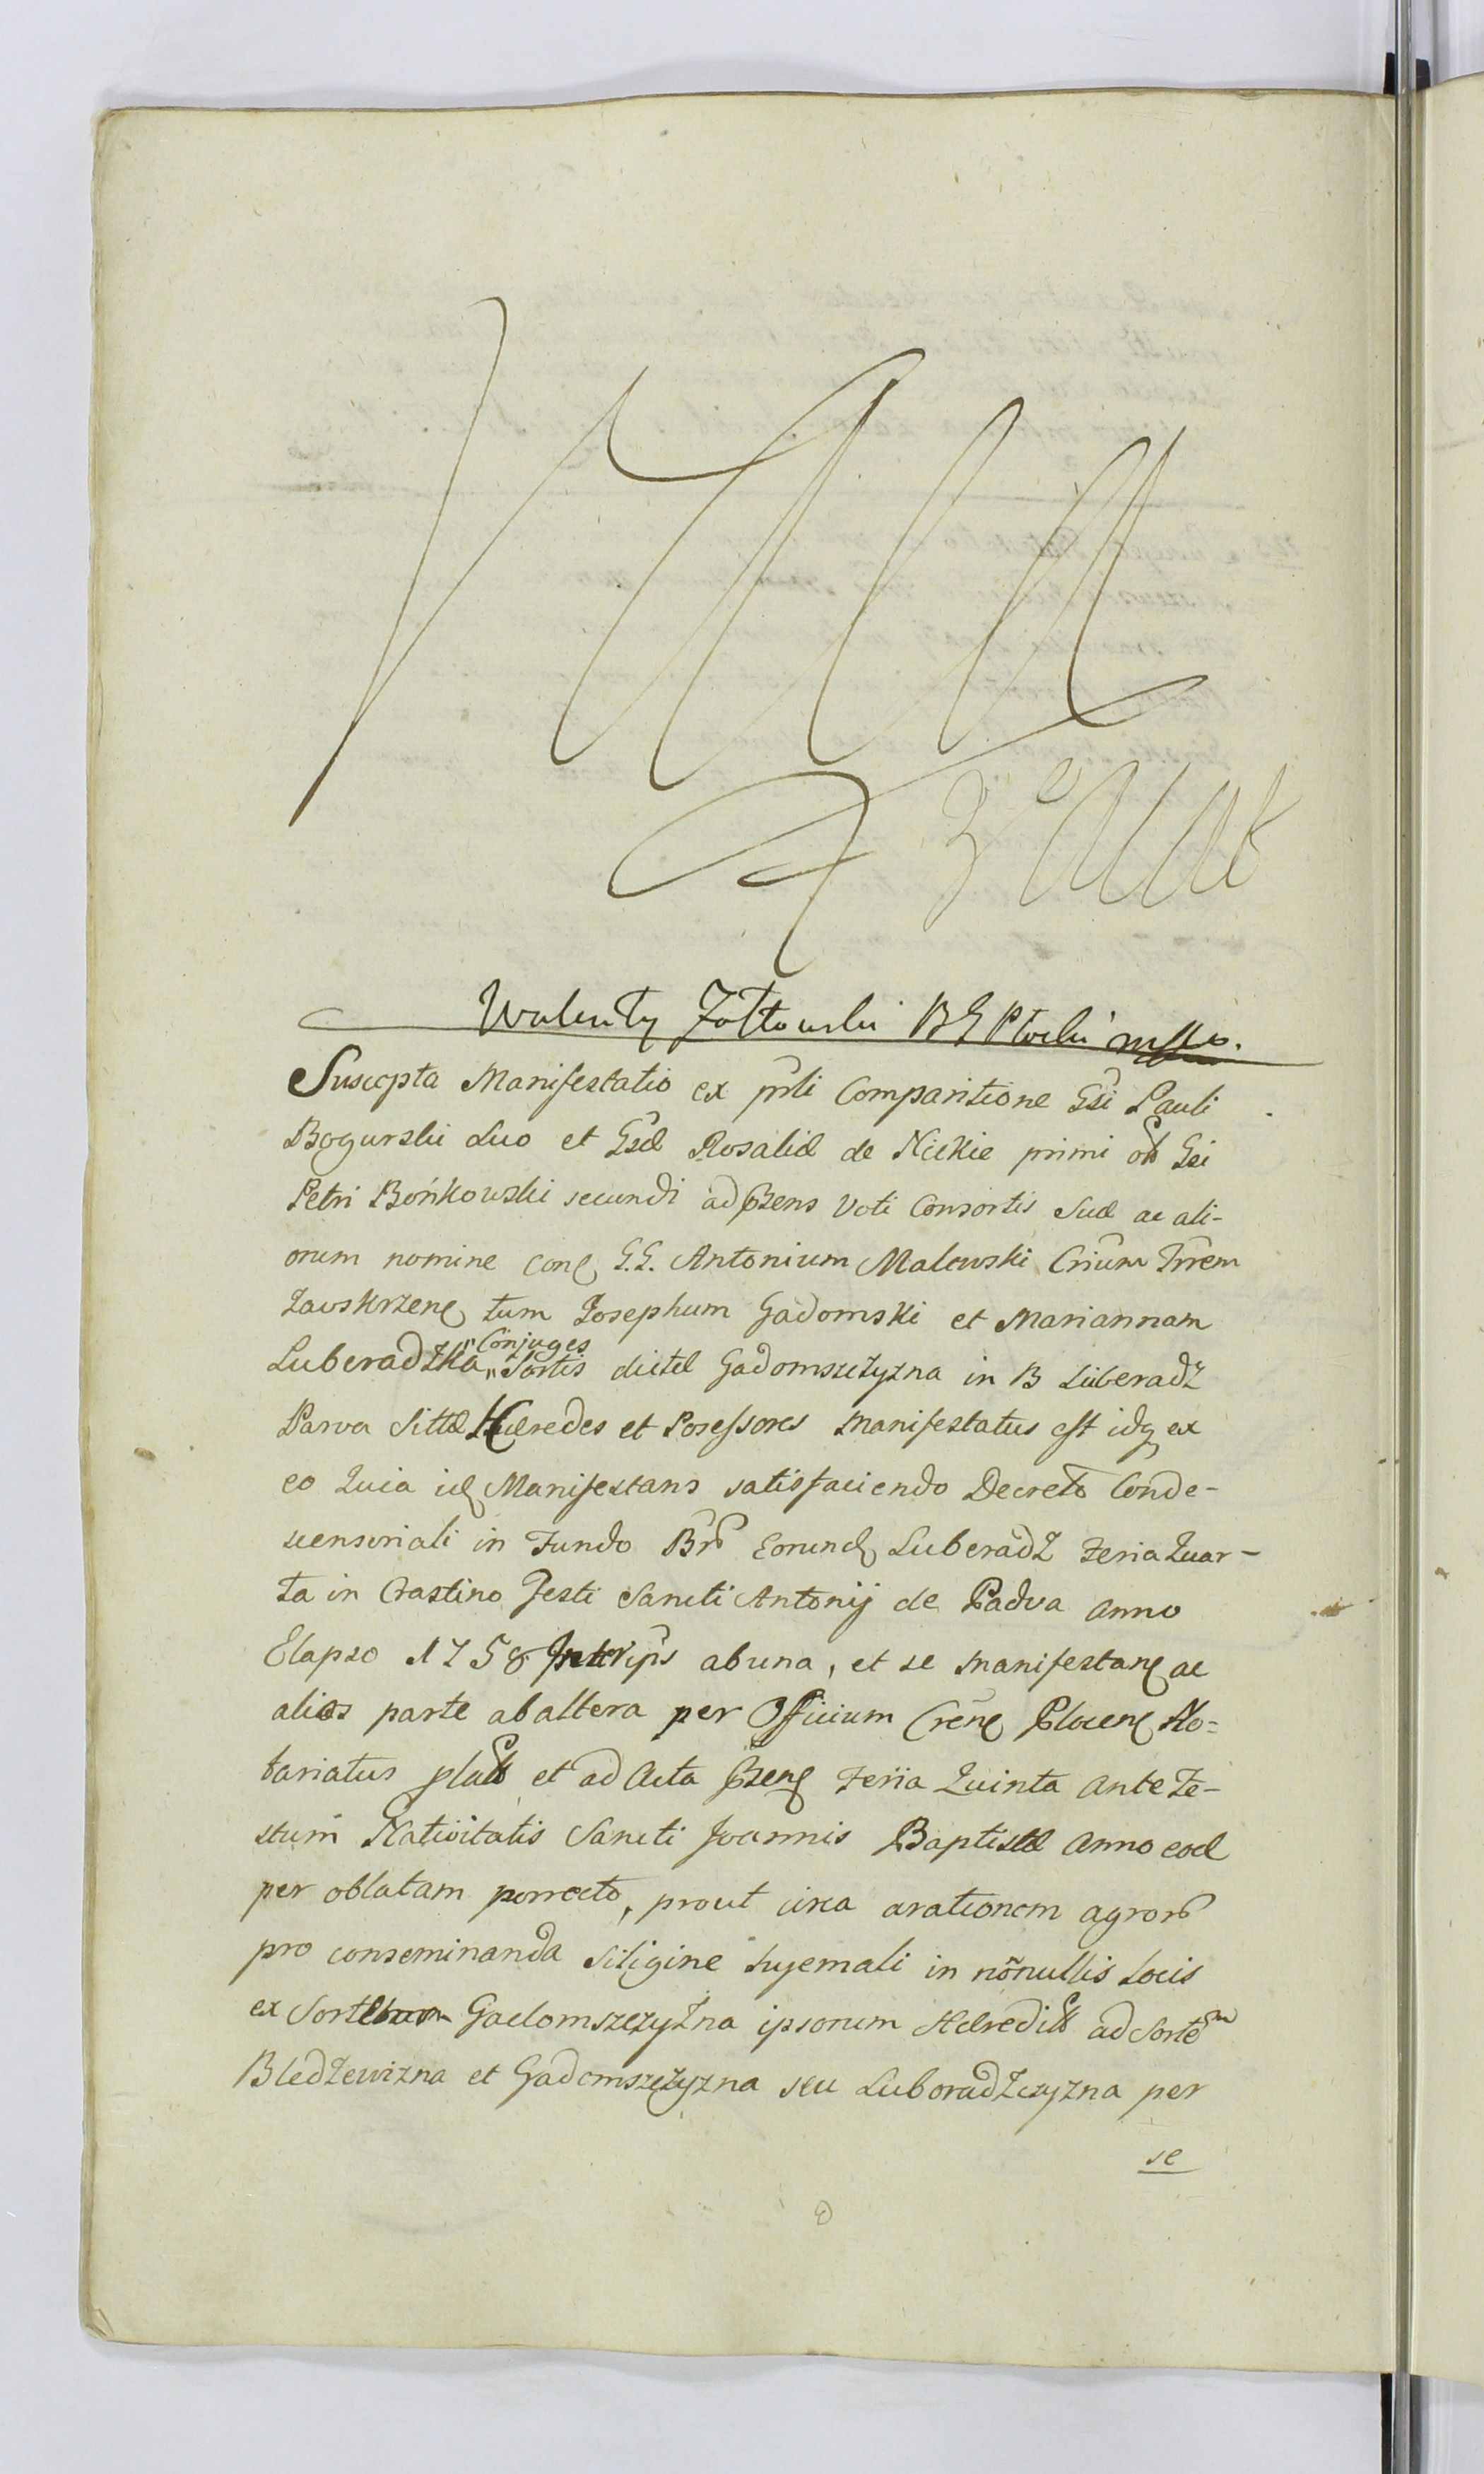 Walenty Żółtowski BG Płocki mpp.
Suscepta Manifestatio ex prsti Comparitione Gsi Pauli
Bogurski Suo et Gsæ Rosaliæ de Nickie primi Gsi
Petri Bońkowski secundi ad przens Voti Consortis Suæ ac ali-
orum nomine con G.G. Antonium Malewski Crium Trrem
Zawskrzen tum Josephum Gadomski et Mariannam
Luberadzka "Conjuges" Sortis dictæ Gadomszczyzna in B Luberadz
Parva Sittæ Hæredes et Posessores manifestatus est idq ex
eo Quia id Manifestans satisfaciendo Decreto Conde-
scensoriali in Fundo Br̃ Eorund Luberadz Feria Quar-
ta in Crastino Festi Sancti Antonij de Padva Anno
Elapso 1758 Inter ips ab una, et se manifestan ac
alios parte ab altera per Officium Cren Plocen No-
tariatus et ad Acta przen Feria Quinta Ante Fe-
stum Nativitatis Sancti Joannis Baptistæ Anno eod
per oblatam porrecto, prout circa arationem agror
pro conseminanda siligine hyemali in nõnullis Locis
ex Gadomszczyzna ipsorum ad Sortem
Bledzewizna et Gadomszczyzna seu Luboradzczyzna per
se